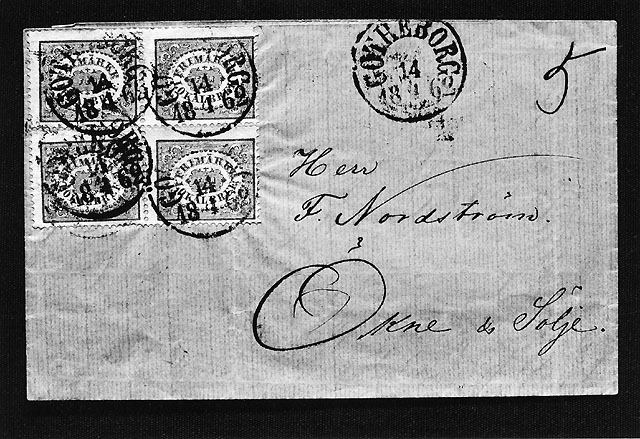 GÖTHEBORG
14
18 1 62
5
FRIMÄRKE
14
18 1 62
FRIMÄRKE
14
18 1 62
FRIMÄRKE
14
18 1 62
FRIMÄRKE
14
18 1 62
Herr
F. Nordström.
Åkne Sölje.